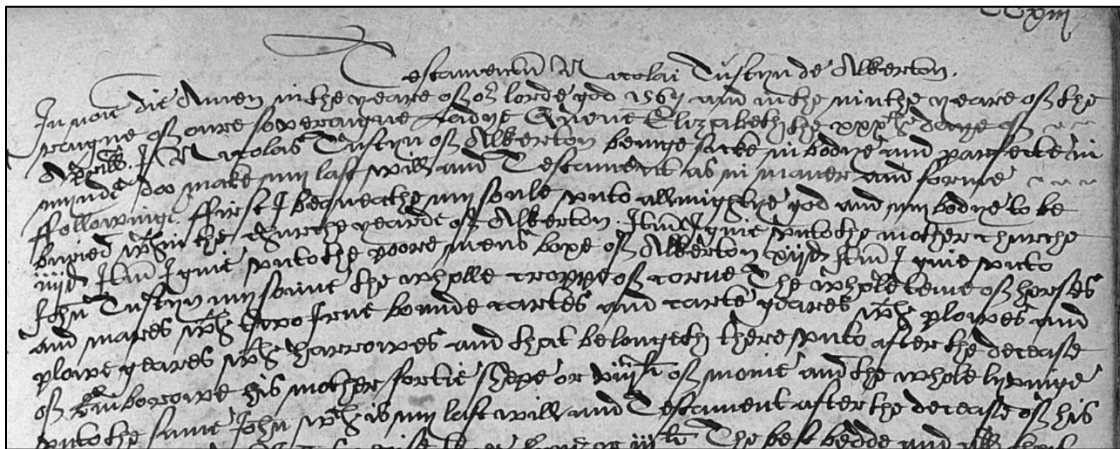 Testamentum Nicolai Tustyn de Alkerton.
In noie die Amen in the yeare of or lorde god 1567 and in the ninthe yeare of the
raigne of oure soveraigne Ladye Quene Elizabeth the xxxth daye of
Aprill. I Nicolas Tustyn of Alkerton beinge sicke in bodye and parfecte in
mynde doo make my last will and Testament as in maner and forme
ffollowinge. ffirst I beqeathe my soule unto allmightye god and my bodye to be
buried wthin the churche yearde of Alkerton. Itm I give unto the mother churche
iiijd Itm I give unto the poore mens boxe of Alkerton xijd Itm I give unto
John Tustyn my sonne the wholle croppe of corne The whole teme of horses
and mares wth two Irne bounde cartes and carte geares wth plowes and
plowe geares wth harrowes and that belongeth thereunto after the decease
of his mother fortie shepe or of monie and the whole lyvinge
unto the same John wch is my last will and Testament after the decease of his
The best bedde and